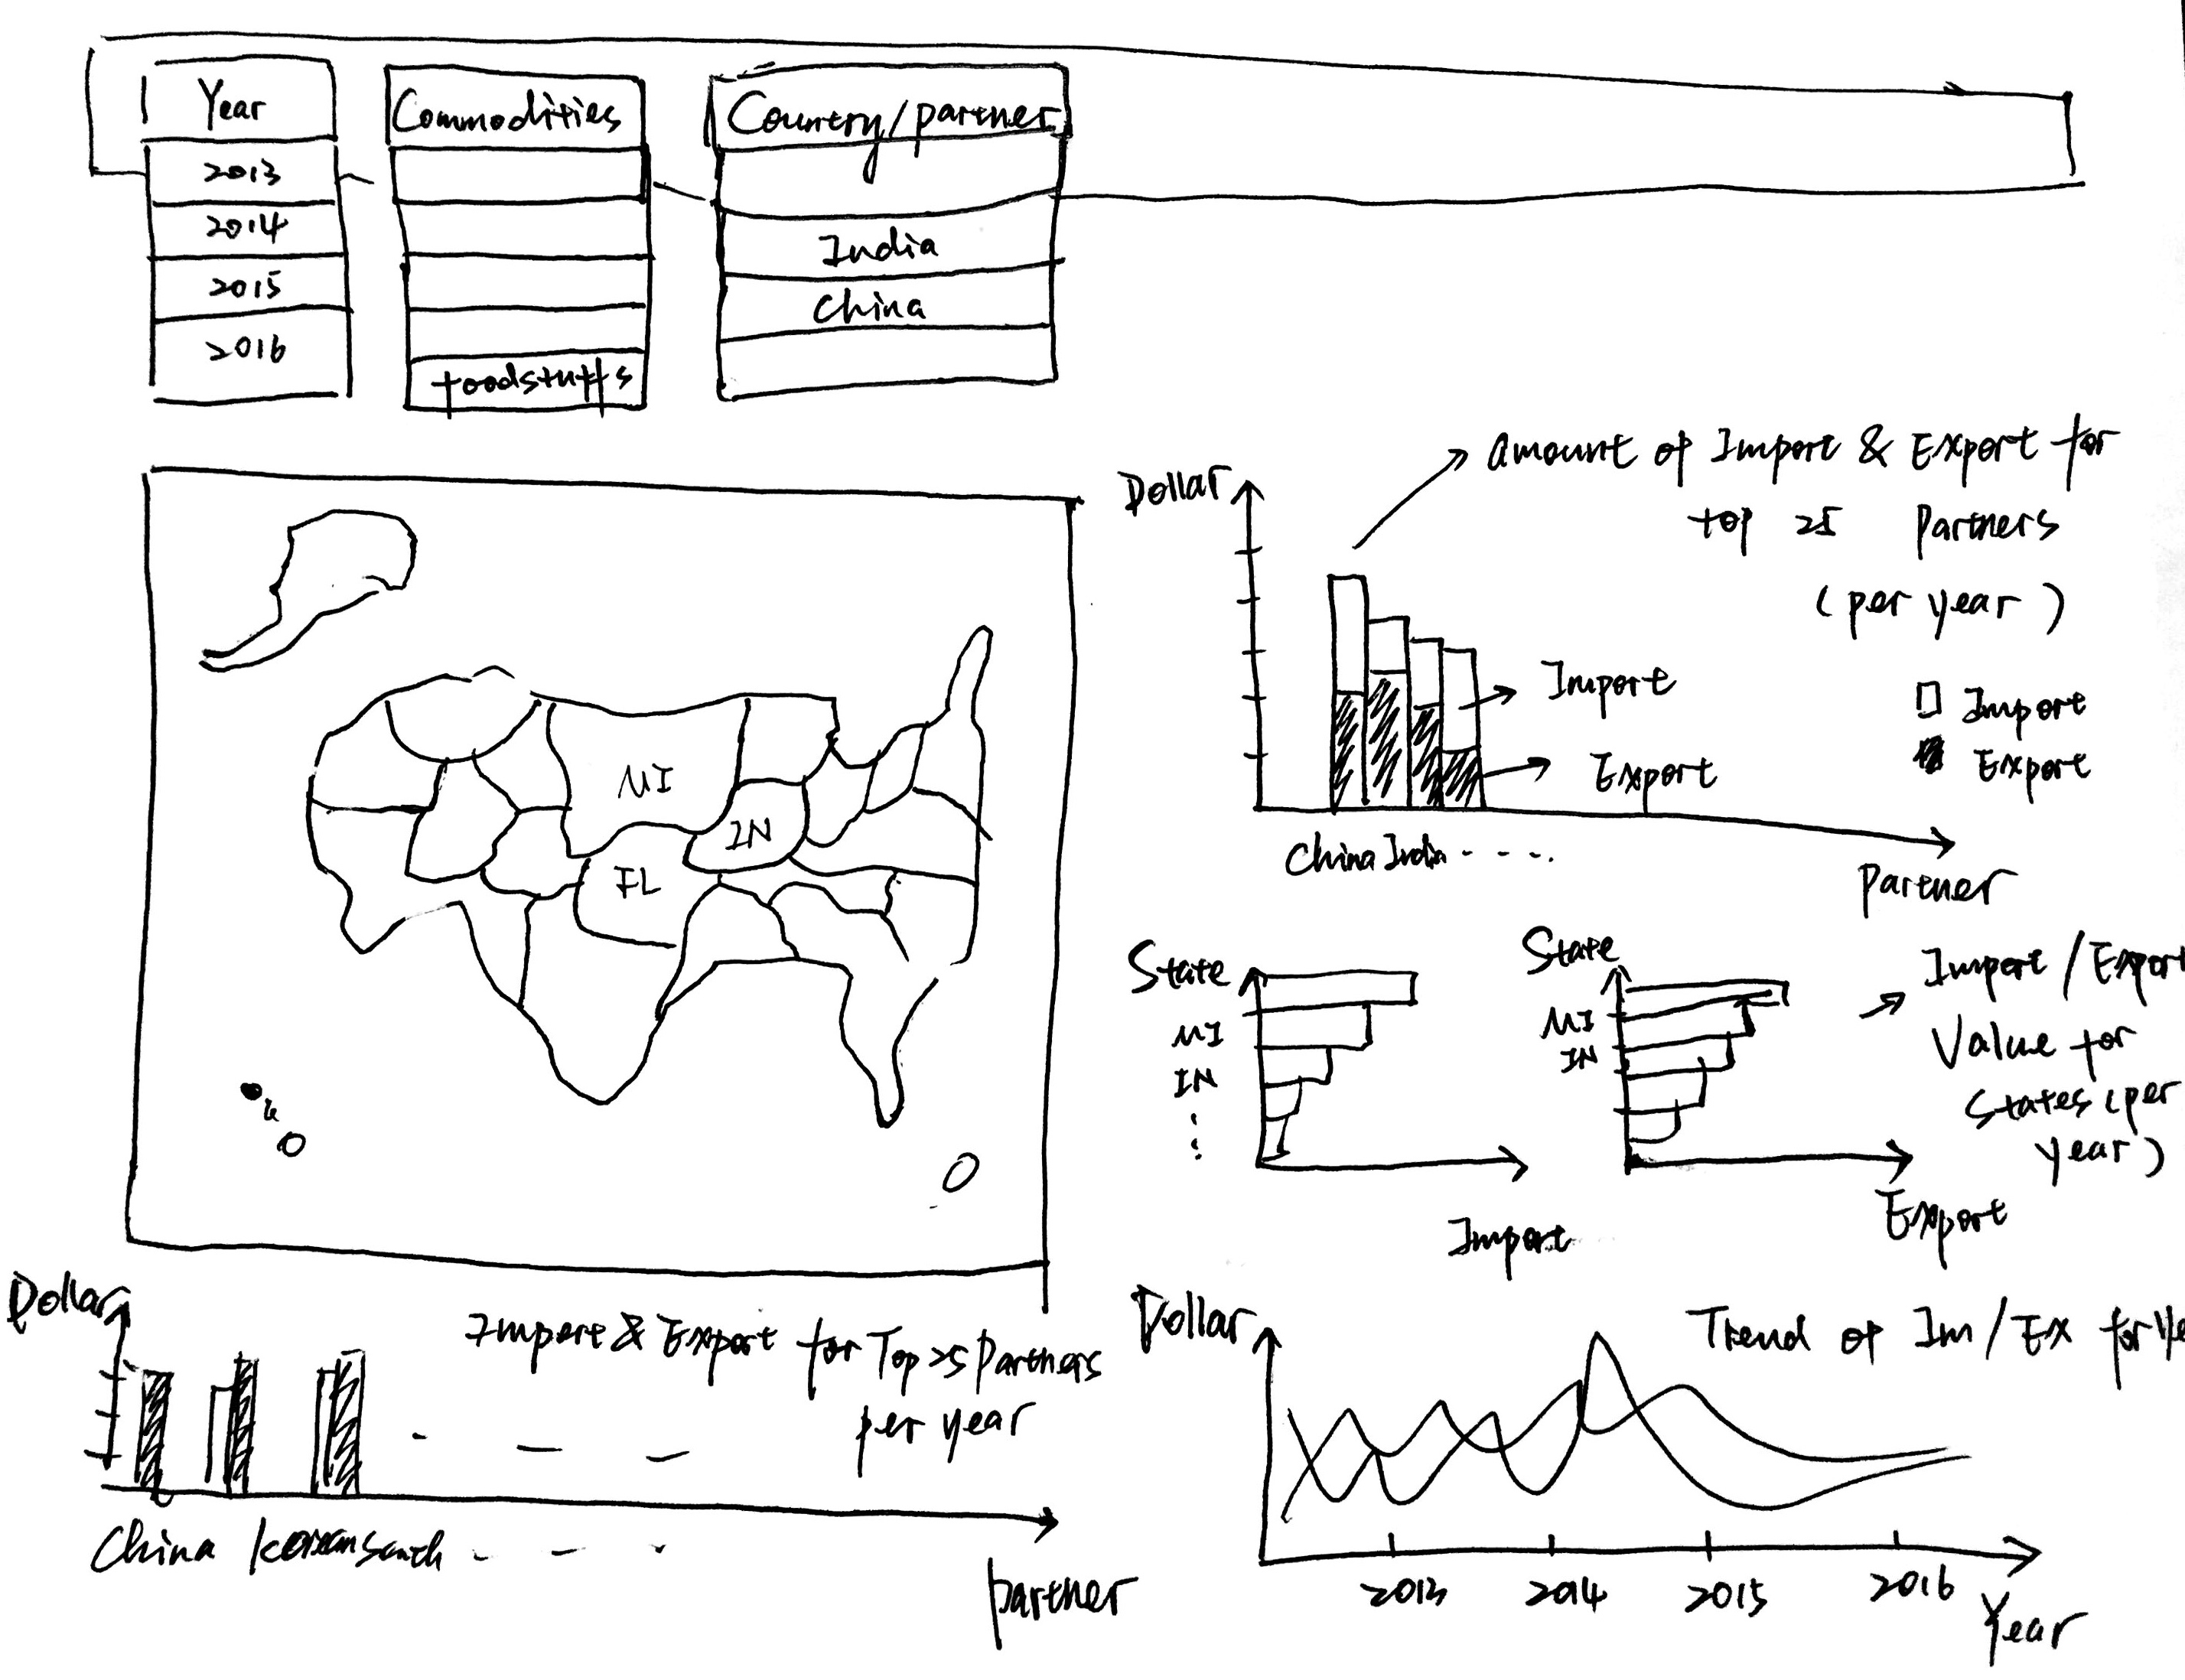 Year
2013
2014
2015
2016
Commodities
foodstuffs
Country/partner
India
China
MI
IN
FL
Dollar
amount of Import & Export for
top 25 Partners
(per year)
Import
Export
Import
Export
China India - - - -
Partner
State
MI
IN
Import
State
MI
IN
Export
Import/Export
Value for
States (per
year)
Dollar
Import & Export for Top 25 Partners
per year
China Korean South - - -
partner
Dollar
Trend of Im/Ex for
2013
2014
2015
2016
Year